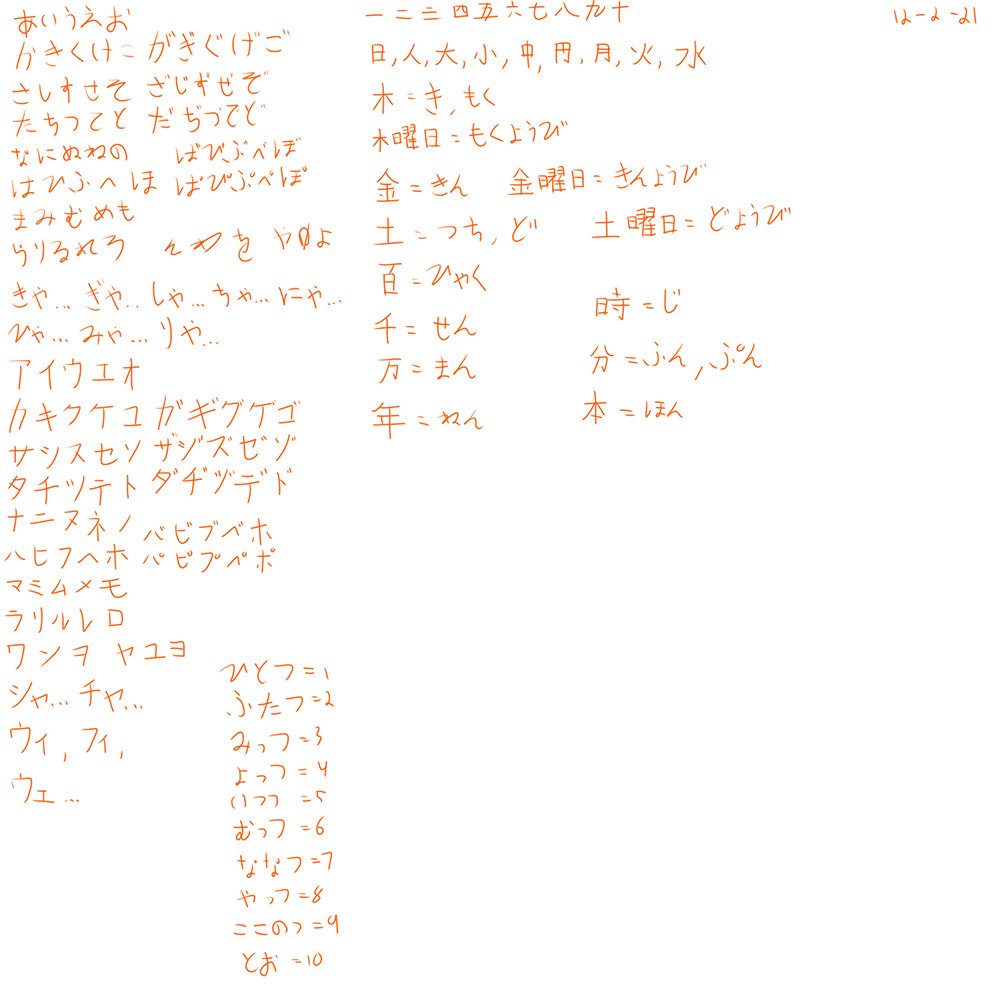 あいうえお
かきくけこ がぎぐげご
さしすせそ ざじずぜぞ
たちつてと だぢづでど
なにぬねの ばびぶべぼ
はひふへほ ぱぴぷぺぽ
まみむめも
らりるれろ んわを やゆよ
きゃ... ぎゃ... しゃ... ちゃ... にゃ...
ひゃ... みゃ... りゃ...
アイウエオ
カキクケコ ガギグゲゴ
サシスセソ ザジズゼゾ
タチツテト ダヂヅデド
ナニヌネノ バビブベホ
ハヒフヘホ パピプペポ
マミムメモ
ラリルレロ
ワンヲ ヤユヨ
シャ... チャ...
ウィ, フィ,
ウェ...
ひとつ=1
ふたつ=2
みっつ=3
よっつ=4
いつつ=5
むっつ=6
ななつ=7
やっつ=8
ここのつ=9
とお=10
一二三四五六七八九十
日,人,大,小,中,円,月,火,水
木=き,もく
木曜日=もくようび
金=きん 金曜日=きんようび
土=つち,ど 土曜日=どようび
百=ひゃく
千=せん
万=まん
年=ねん
時=じ
分=ふん,ぷん
本=ほん
12-2-21